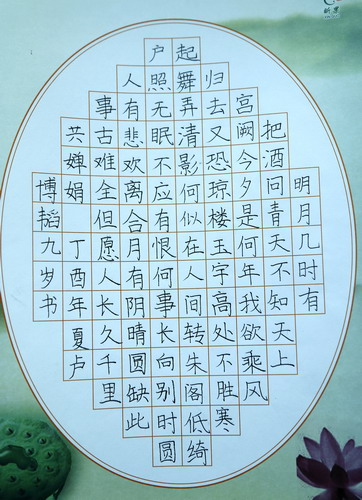 明月几时有
把酒问青天不知天上
宫阙今夕是何年我欲乘风
归去又恐琼楼玉宇高处不胜寒
起舞弄清影何似在人间转朱阁低绮
户照无眠不应有恨何事长向别时圆
人有悲欢离合月有阴晴圆缺此
事古难全但愿人长久千里
共婵娟 丁酉年夏卢
博韬九岁书